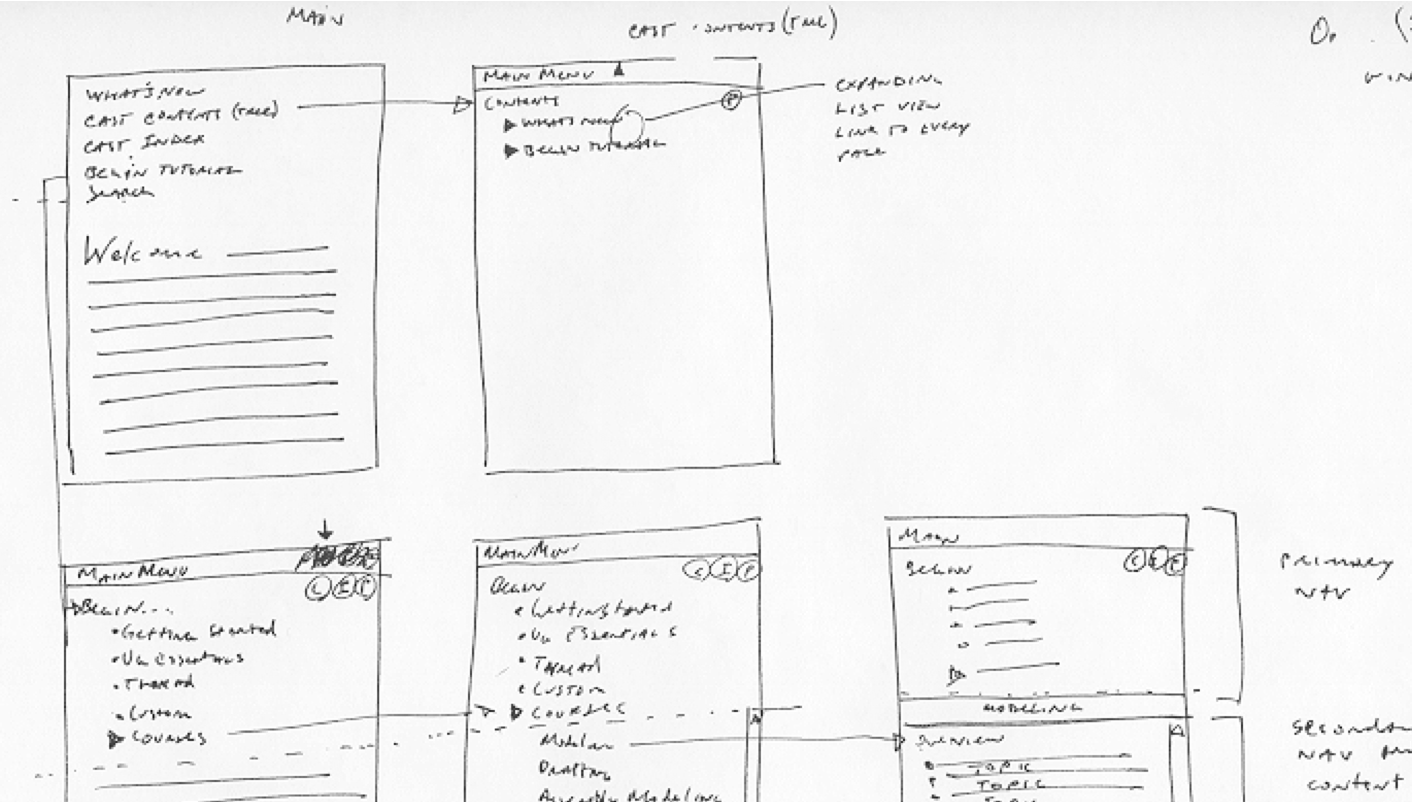 MAIN
CAST CONTENTS (TREE)
WHAT'S NEW
CAST CONTENTS (TREE)
CAST INDEX
BEGIN TUTORIAL
SEARCH
Welcome
MAIN MENU
CONTENTS
WHAT'S NEW
BEGIN TUTORIAL
P
EXPANDING
LIST VIEW
LINK TO EVERY
PAGE
MAIN MENU
C I P
BEGIN...
Getting Started
UG Essentials
Thread
Custom
COURSES
MAIN MENU
C I P
BEGIN
Getting Started
UG ESSENTIALS
THREAD
CUSTOM
COURSES
Modeling
Drafting
Assembly Modeling
MAIN
BEGIN
MODELING
Overview
TOPIC
TOPIC
TOPIC
PRIMARY
NAV
SECONDAR
NAV
CONTENT